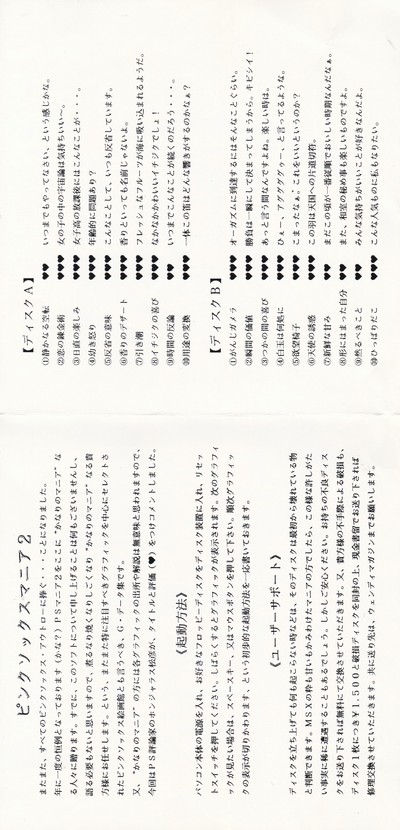 ピンクソックスマニア2
またまた、すべてのピンクソックス・アウトローに捧ぐ・・・ことになりました。
年に一度の恒例となっております(かな?)PSマニア2をここに"かなりのマニア"な
る人々に贈ります。すでに、このソフトについて申し上げることは何もございませんし、
語る必要もないと思いますので、煮るなり焼くなりしごくなり"かなりのマニア"なる貴
方様にお任せします。という、またまた特に注目すべきグラフィックを中心にセレクトさ
れたピンクソックス絵画館とも言うべき、G・データ集です。
又、"かなりのマニア"の方には各グラフィックの出所や解説は無意味と思われますので、
今回はPS評論家のホンジャラス松彦が、タイトルと評価(♥)をつけコメントしました。
《起動方法》
パソコン本体の電源を入れ、お好きなフロッピーディスクをディスク装置に入れ、リセッ
トスイッチを押してください。しばらくするとグラフィックが表示されます。次のグラフィ
ックが見たい場合は、スペースキー、又はマウスボタンを押して下さい。順次グラフィッ
クの表示が切りかわります、という初歩的な起動方法を一応書いておきます。
《ユーザーサポート》
ディスクを立ち上げても何も起こらない時などは、そのディスクは最初から壊れている物
と判断できます。MSXの粋も甘いもかみわけたマニアの方でしたら、この様な許しがた
い事実に稀に遭遇することもあるでしょう。しかしご安心ください。お持ちの不良ディス
クをお送り下されば無料にて交換させていただきます。又、貴方様の不手際による破損も、
ディスク1枚につき¥1,500と破損ディスクを同封の上、現金書留でお送り下されば
修理交換させていただきます。共に送り先は、ウェンディマガジンまでお願いします。
【ディスクA】
①静かなる空転 ♥♥ いつまでもやってなさい、という感じかな。
②恋の錬金術 ♥♥♥ 女の子の中の宇宙論は気持ちいい～。
③日直の楽しみ ♥♥♥ 女子高の放課後にはこんなことが・・・。
④幼き怒り ♥♥ 年齢的に問題あり?
⑤反省の意味 ♥♥♥ こんなことして、いつも反省しています。
⑥香りのデザート ♥♥♥ 香りといっても名前じゃないよ。
⑦引き潮 ♥♥♥ フレッシュなフルーツが海に吸い込まれるようだ。
⑧イチジクの喜び ♥♥♥ なかなかかわいいイチジクでしょ!
⑨時間の反論 ♥♥ いつまでこんなことが続くのだろう・・・。
⑩用途の変換 ♥♥♥ 一体この笛はどんな響きがするのかなぁ?
【ディスクB】
①がんじガメラ ♥♥♥ オーガズムに到達するにはそんなことぐらい。
②瞬間の価値 ♥♥♥ 勝負は一瞬にして決まってしまうから。キビシイ!
③つかの間の喜び ♥♥♥ あっと言う間なんですよね。楽しい時は。
④白玉は何処に ♥♥♥ ひぇ～、アグググググゥー、と言ってるような。
⑤欲望椅子 ♥♥♥ こまったなぁ。これをいいというのか?
⑥天使の誘惑 ♥♥♥ この羽は天国への片道切符。
⑦新鮮な甘み ♥♥ まだこの頃が一番従順でおいしい時期なんだなぁ。
⑧形にはまった自分 ♥♥♥ また、和室の秘め事も楽しいものですよ。
⑨然るべきこと ♥♥♥ みんな気持ちがいいことが好きなんだよ。
⑩ひっぱりだこ ♥♥♥ こんな人気ものに私もなりたい。